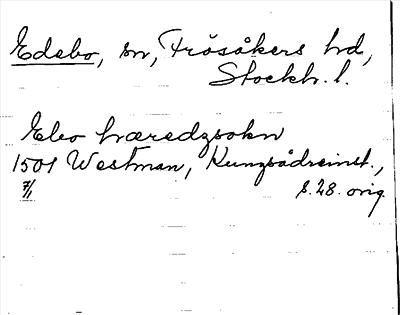 Edebo, sn, Frösåkers hd,
Stockh. l.
Ebo hæredzsokn
1501 Westman, Kungsådreinst.,
7/1 s. 28. orig.